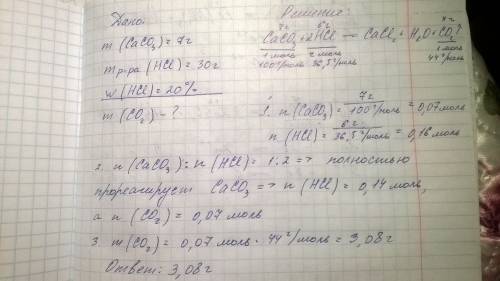 Дано:
m (CaCO₃) = 7г
mр-ра (HCl) = 30г
w (HCl) = 20%
m (CO₂) - ?
Решение:
7г 6г xг
CaCO₃ + 2HCl — CaCl₂ + H₂O + CO₂↑
1 моль 2 моль 1 моль
100г/моль 36,5г/моль 44г/моль
1. n (CaCO₃) = 7г / 100г/моль = 0,07 моль
n (HCl) = 6г / 36,5г/моль = 0,16 моль
2. n (CaCO₃) : n (HCl) = 1:2 => полностью
прореагирует CaCO₃ => n (HCl) = 0,14 моль,
а n (CO₂) = 0,07 моль
3. m (CO₂) = 0,07 моль · 44г/моль = 3,08г
Ответ: 3,08г